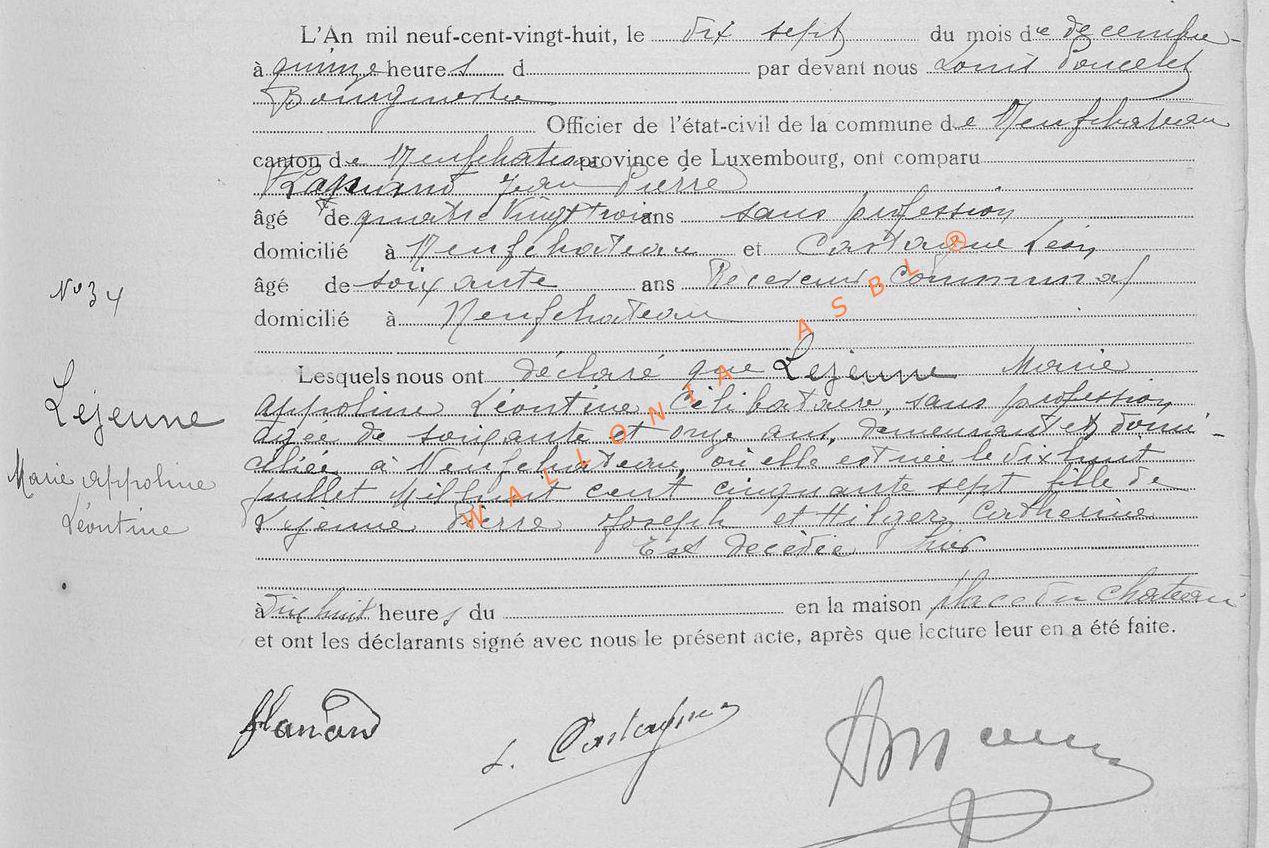 L'An mil neuf-cent-vingt-huit, le dix sept du mois de decembre
à quinze heures d par devant nous Louis Poncelet
Bourgmestre
Officier de l'état-civil de la commune de Neufchateau
canton de Neufchateau province de Luxembourg, ont comparu
Jean Pierre
âgé de quatre vingt trois ans sans profession
domicilié à Neufchateau et Castagne Léon,
N° 34
âgé de soixante ans Receveur Communal
domicilié à Neufchateau
Lesquels nous ont déclaré que Lejeune Marie
Lejeune
Appoline Léontine, Célibataire, sans profession,
agée de soixante et onze ans, demeurant et domi-
Marie Appoline
Léontine
ciliée à Neufchateau, où elle est née le dix huit
juillet Mil huit cent cinquante sept fille de
Lejeune Pierre Joseph et Hilger Catherine
Est décédée hier
à dix huit heures du en la maison place du Chateau
et ont les déclarants signé avec nous le présent acte, après que lecture leur en a été faite.
L. Castagne
WALLONIA ASBL ®